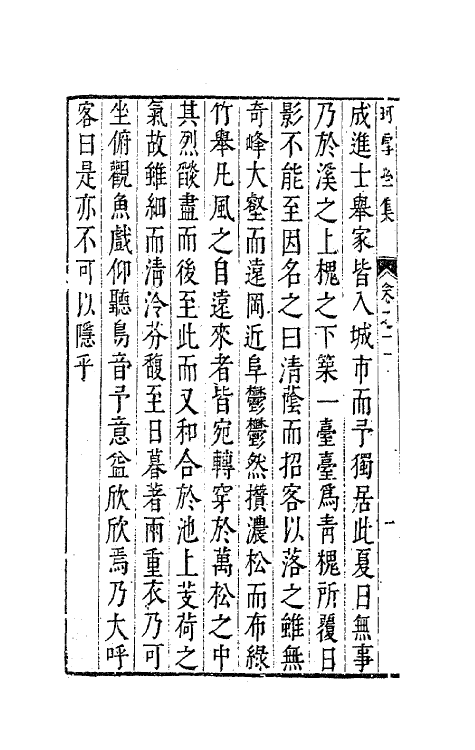 珂雪齋集
卷之十一
一
成進士舉家皆入城市而予獨居此夏日無事
乃於溪之上槐之下築一臺臺為青槐所覆日
影不能至因名之曰清蔭而招客以落之雖無
奇峰大壑而遠岡近阜鬱鬱然攢濃松而布綠
竹舉凡風之自遠來者皆宛轉穿於萬松之中
其烈燄盡而後至此而又和合於池上芰荷之
氣故雖細而清泠芬馥至日暮著兩重衣乃可
坐俯觀魚戲仰聽鳥音予意益欣欣焉乃大呼
客曰是亦不可以隱乎